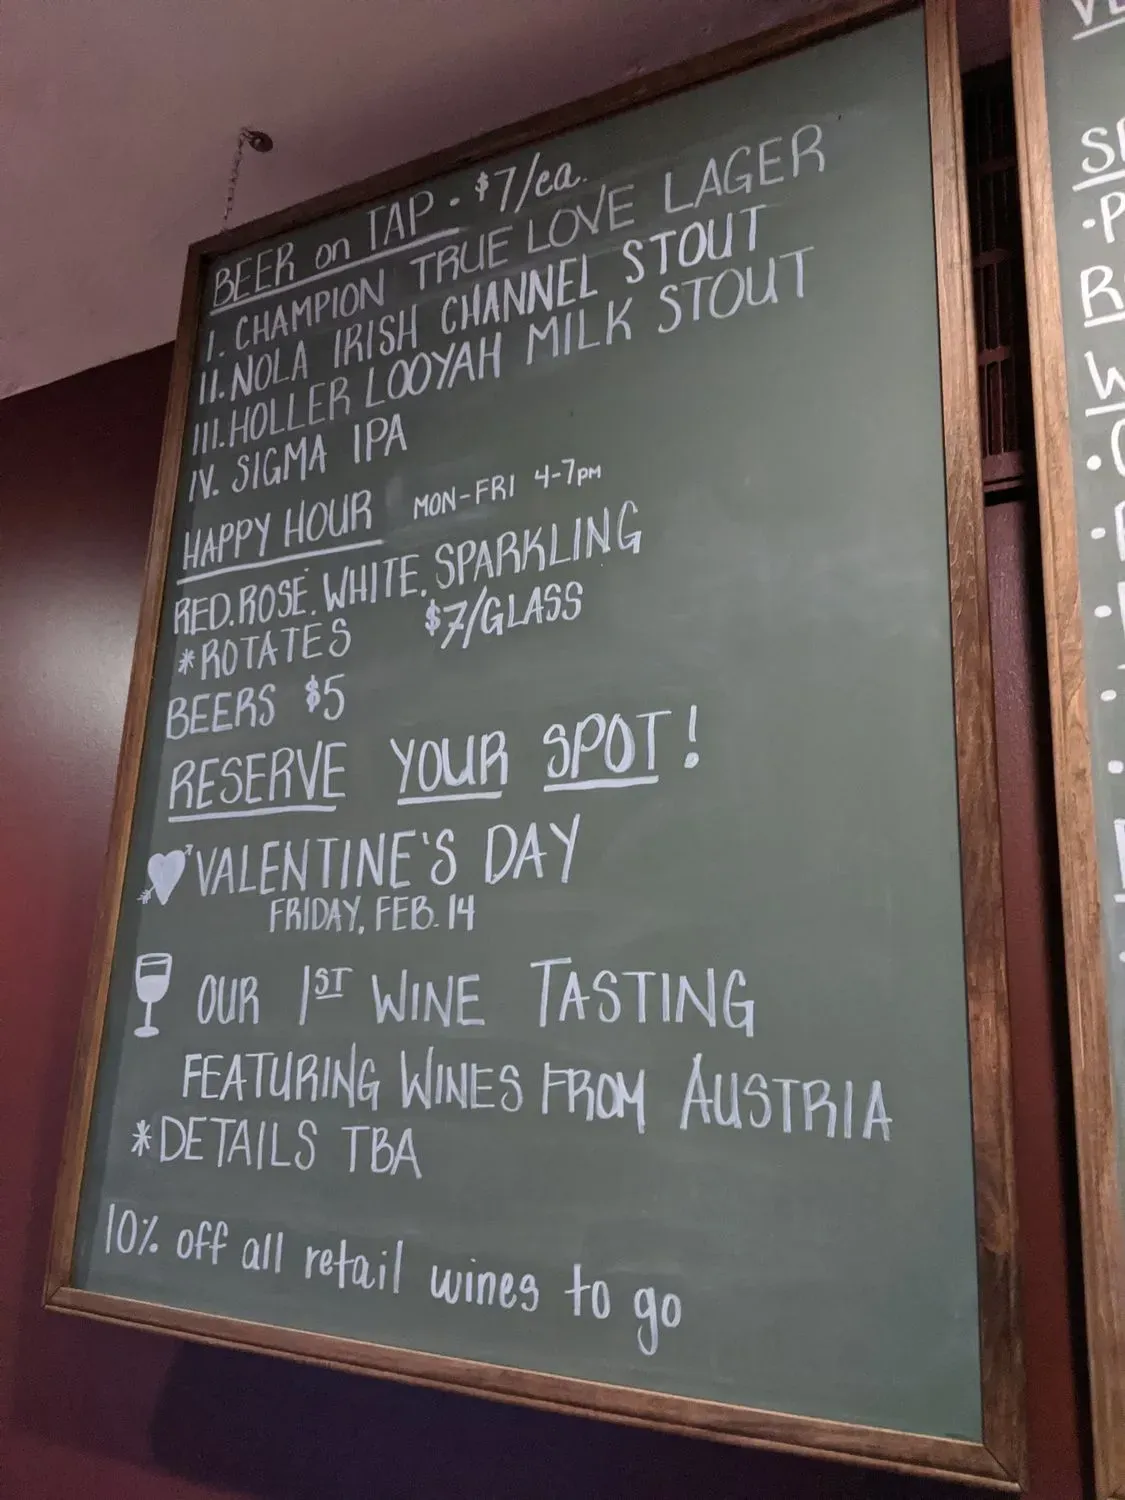 BEER on TAP · $7/ea.
I. CHAMPION TRUE LOVE LAGER
II. NOLA IRISH CHANNEL STOUT
III. HOLLER LOOYAH MILK STOUT
IV. SIGMA IPA
HAPPY HOUR MON-FRI 4-7pm
RED. ROSE. WHITE. SPARKLING
*ROTATES $7/GLASS
BEERS $5
RESERVE YOUR SPOT!
VALENTINE'S DAY
FRIDAY, FEB. 14
OUR 1ST WINE TASTING
FEATURING WINES FROM AUSTRIA
*DETAILS TBA
10% off all retail wines to go